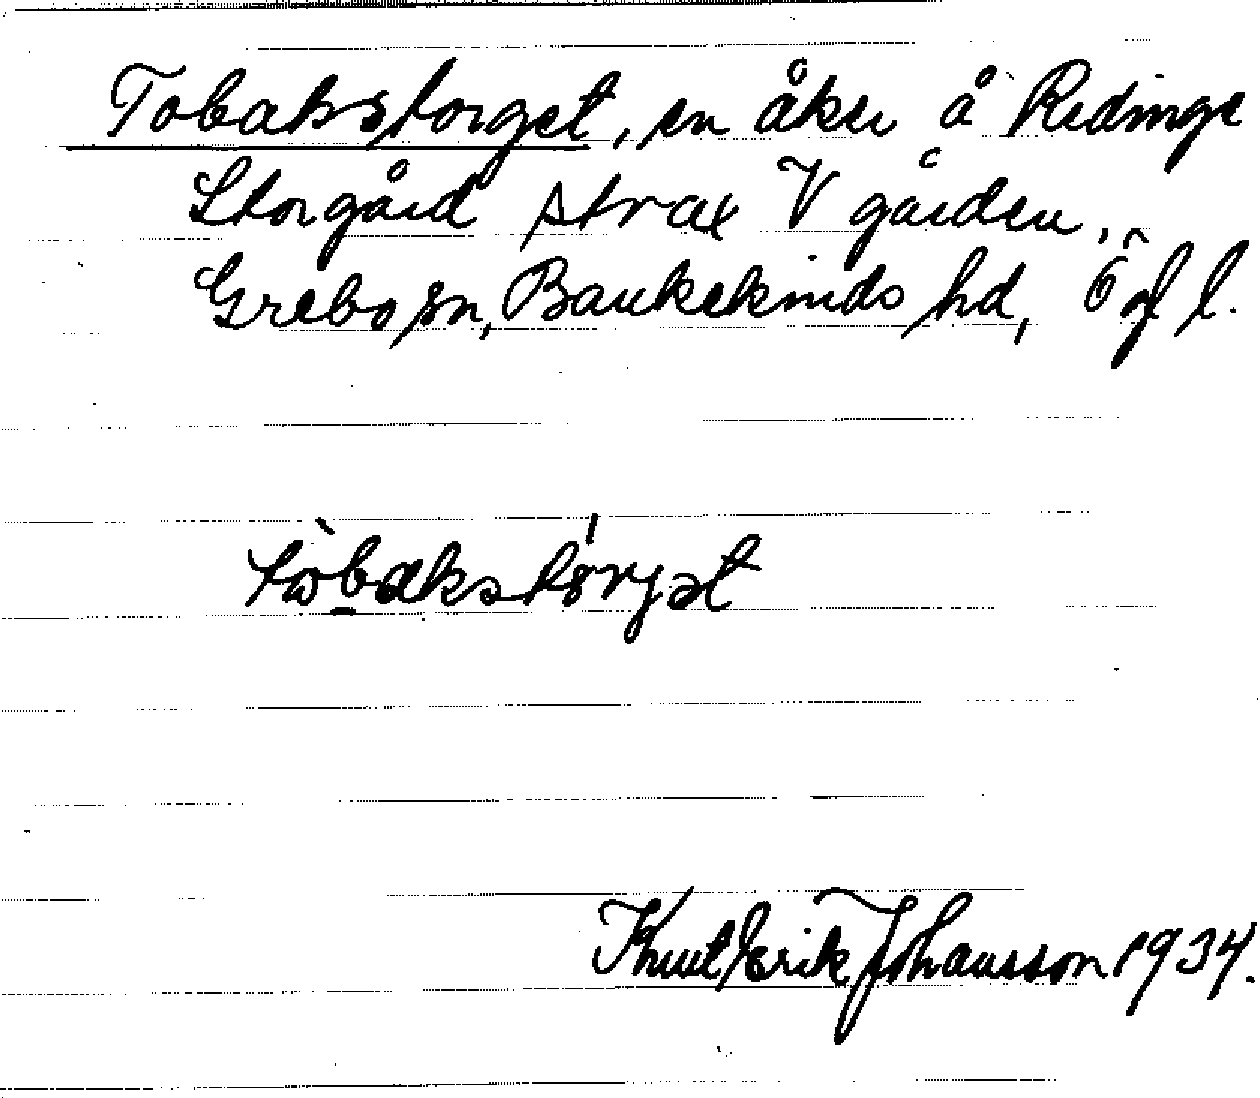 Tobakstorget, en åker å Redinge
Storgård strax V gården,
Grebo sn, Bankekinds hd, Ögl.
Knut Erik Johansson 1934.